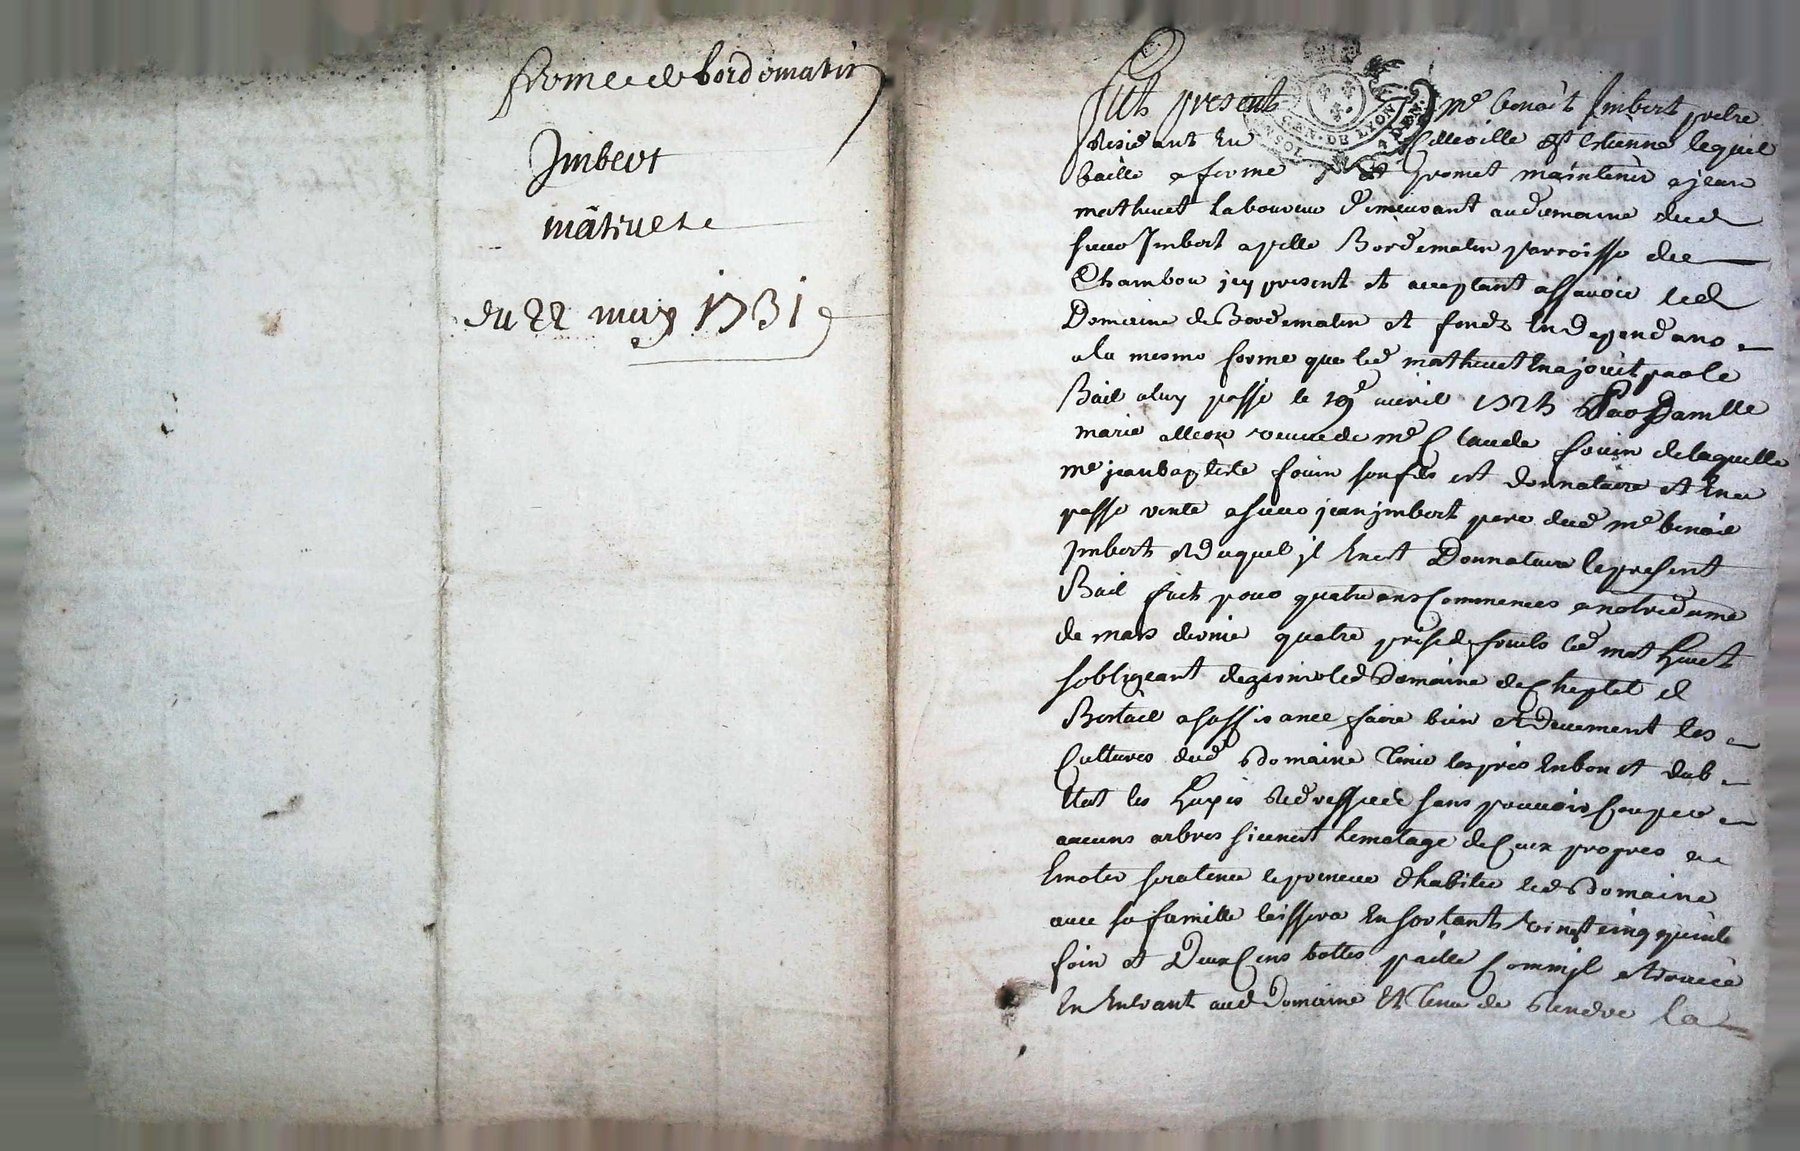 ferme de bordematin
Imbert
mathuet
du 22 may 1731
Fut present Me benoit Imbert pretre
residant en cette ville St Estienne lequel
baille a ferme et promet maintenir a jean
mathuet laboureur demeurant au domaine dud
sieur Imbert apelle Bordematin parroisse de
Chambon icy present et acceptant assavoir led
Domaine de Bordematin et fonds en dependans
a la mesme forme que led mathuet en a jouit par le
Bail a luy passé le 19e avril 1725 par Damlle
marie alleon veuve de me Claude fouin de laquelle
me jean baptiste fouin son fils est donnataire et en a
passé vente a sieur jean imbert pere dud me benoit
Imbert et duquel il en est Donnataire le present
Bail fait pour quatre ans commencés a notre dame
de mars dernier quatre prises de fruits led mathuet
sobligeant de garnir led Domaine de Cheptel et
Bestail a suffisance faire bien et deuement les
Cultures dud Domaine tenir les prés en bon et deub
Etat les hayes redressées sans pouvoir couper
aucuns arbres si ce n'est lemotage de ceux propres a
Emoter sera tenu le preneur d'habiter led Domaine
avec sa famille laissera en sortant vingt cinq quintaux
foin et Deux Cens bottes paille comm'il a trouvé
En Entrant aud Domaine Et tenu de rendre la